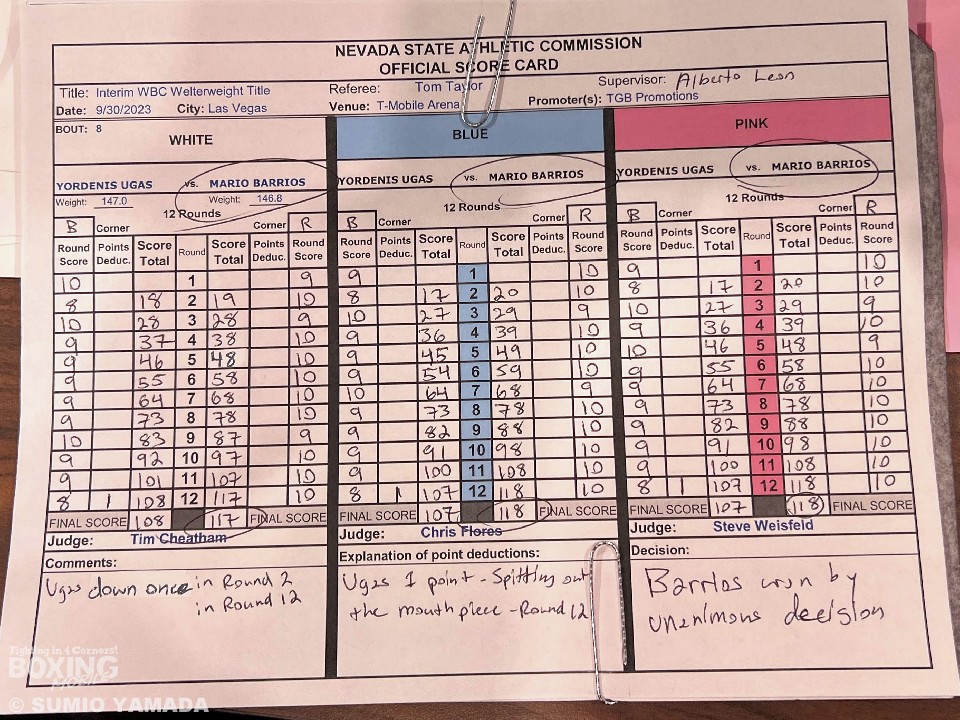 NEVADA STATE ATHLETIC COMMISSION
OFFICIAL SCORE CARD
Title: Interim WBC Welterweight Title Referee: Tom Taylor Supervisor: Alberto Leon
Date: 9/30/2023 City: Las Vegas Venue: T-Mobile Arena Promoter(s): TGB Promotions
BOUT: 8
WHITE BLUE PINK
YORDENIS UGAS vs. MARIO BARRIOS YORDENIS UGAS vs. MARIO BARRIOS YORDENIS UGAS vs. MARIO BARRIOS
Weight: 147.0 Weight: 146.8
12 Rounds 12 Rounds 12 Rounds
B Corner Corner R B Corner Corner R B Corner Corner R
Round Score Points Deduc. Score Total Round Score Total Points Deduc. Round Score Round Score Points Deduc. Score Total Round Score Total Points Deduc. Round Score Round Score Points Deduc. Score Total Round Score Total Points Deduc. Round Score
10 1 9 9 1 10 9 1 10
8 18 2 19 10 8 17 2 20 10 8 17 2 20 10
10 28 3 28 9 10 27 3 29 9 10 27 3 29 9
9 37 4 38 10 9 36 4 39 10 9 36 4 39 10
9 46 5 48 10 9 45 5 49 10 10 46 5 48 9
9 55 6 58 10 9 54 6 59 10 9 55 6 58 10
9 64 7 68 10 10 64 7 68 9 9 64 7 68 10
9 73 8 78 10 9 73 8 78 10 9 73 8 78 10
10 83 9 87 9 9 82 9 88 10 9 82 9 88 10
9 92 10 97 10 9 91 10 98 10 9 91 10 98 10
9 101 11 107 10 9 100 11 108 10 9 100 11 108 10
8 1 108 12 117 10 8 1 107 12 118 10 8 1 107 12 118 10
FINAL SCORE 108 117 FINAL SCORE FINAL SCORE 107 118 FINAL SCORE FINAL SCORE 107 118 FINAL SCORE
Judge: Tim Cheatham Judge: Chris Flores Judge: Steve Weisfeld
Comments: Explanation of point deductions: Decision:
Ugas down once in Round 2
in Round 12
Ugas 1 point - Spitting out
the mouthpiece - Round 12
Barrios won by
unanimous decision
Fighting in 4 Corners!
BOXING
© SUMIO YAMADA